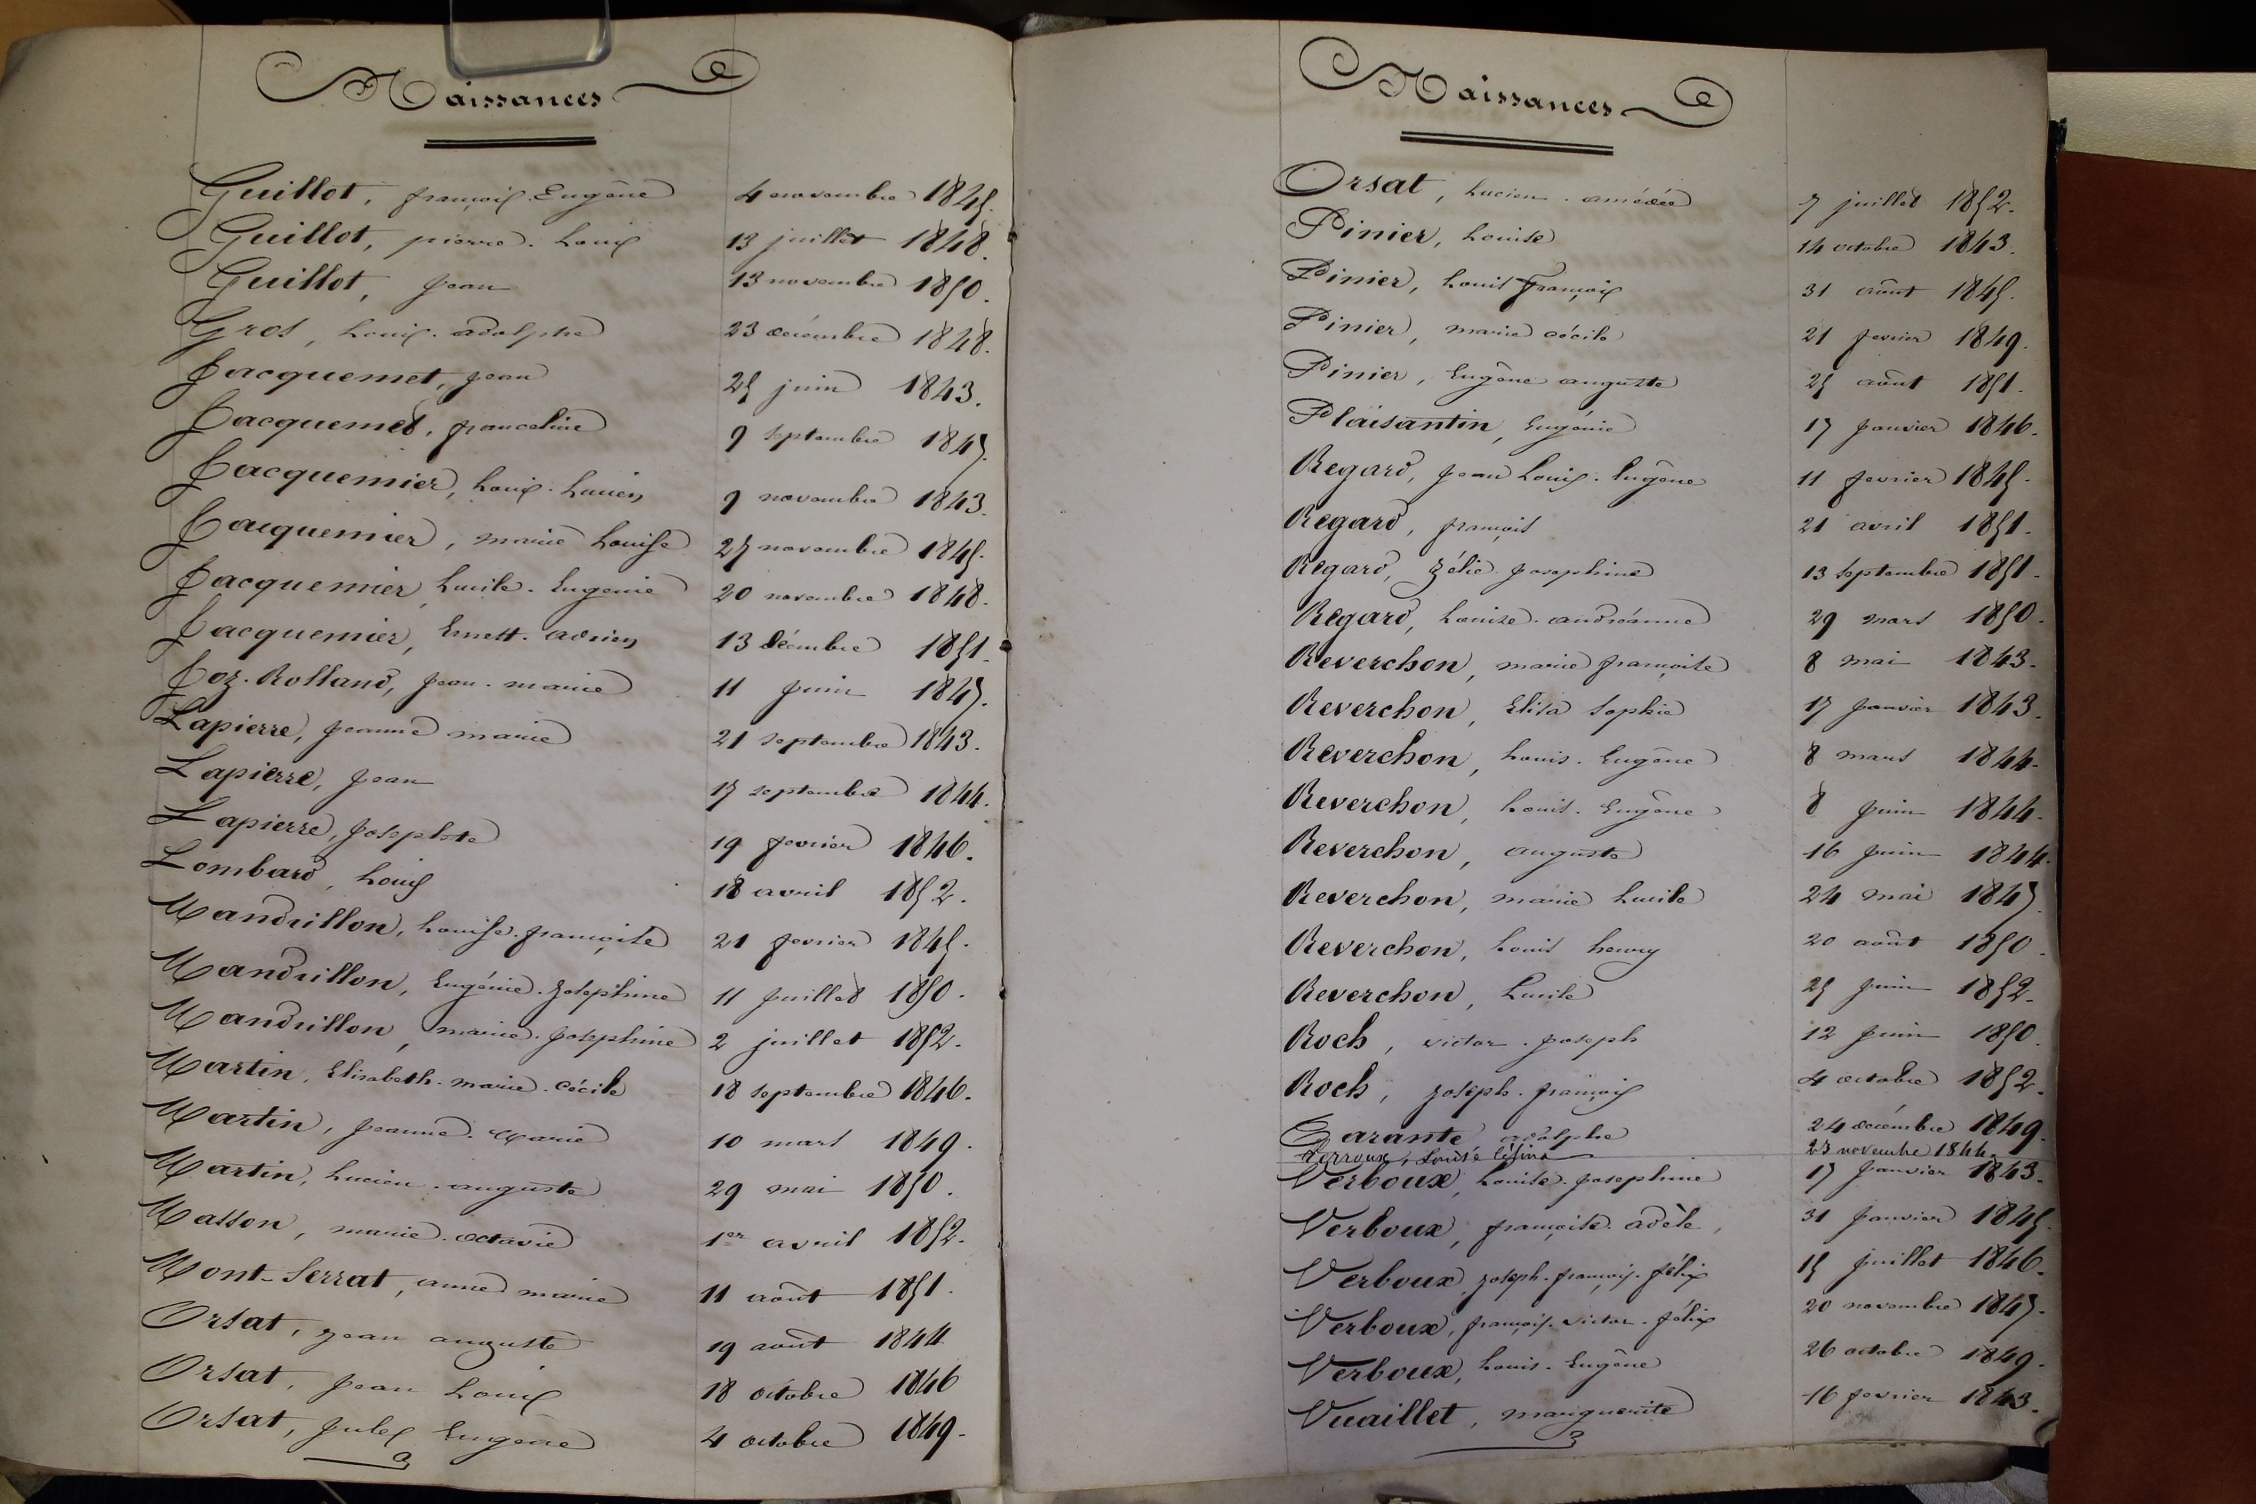 Naissances
Guillot, françois Eugène 4 novembre 1845.
Guillot, pierre. Louis 13 juillet 1848.
Guillot, Jean 13 novembre 1850.
Gros, Louis. adolphe 23 décembre 1848.
Jacquemet, Jean 25 juin 1843.
Jacquemet, franceline 9 septembre 1847.
Jacquemier, Louis. Lucien 9 novembre 1843.
Jacquemier, marie Louise 27 novembre 1845.
Jacquemier, Lucile. Eugenie 20 novembre 1848.
Jacquemier, Ernest. adrien 13 décembre 1851.
Joz-Rolland, Jean. marie 11 Juin 1847.
Lapierre, Jeanne marie 21 septembre 1843.
Lapierre, Jean 17 septembre 1844.
Lapierre, Josephte 19 fevrier 1846.
Lombard, Louis 18 avril 1852.
Mandrillon, Louise. françoise 21 fevrier 1845.
Mandrillon, Eugénie. Josephine 11 Juillet 1850.
Mandrillon, marie. Josephine 2 juillet 1852.
Martin, Elisabeth. marie. Cécile 18 septembre 1846.
Martin, Jeanne. Marie 10 mars 1849.
Martin, Lucien. auguste 29 mai 1850.
Masson, marie. octavie 1er avril 1852.
Mont-Serrat, anne marie 11 août 1851.
Orsat, Jean auguste 19 août 1844
Orsat, Jean Louis 18 octobre 1846
Orsat, Jules Eugène 4 octobre 1849.
Naissances
Orsat, Lucien. amédée 7 juillet 1852.
Pinier, Louise 14 octobre 1843.
Pinier, Louis François 31 août 1845.
Pinier, marie cécile 21 fevrier 1849.
Pinier, Eugène auguste 25 août 1851.
Plaisantin, Eugénie 17 Janvier 1846.
Regard, Jean Louis. Eugène 11 fevrier 1845.
Regard, françois 21 avril 1851.
Regard, Zélie. Josephine 13 septembre 1851.
Regard, Louise. andréanne 29 mars 1850.
Reverchon, marie françoise 8 mai 1843.
Reverchon, Elisa Sophie 17 Janvier 1843.
Reverchon, Louis. Eugène 8 mars 1844.
Reverchon, Louis. Eugène 8 Juin 1844.
Reverchon, auguste 16 Juin 1844.
Reverchon, marie Lucile 24 mai 1847.
Reverchon, Louis henry 20 août 1850.
Reverchon, Lucile 25 Juin 1852.
Roch, victor. Joseph 12 Juin 1850.
Roch, Joseph. françois 4 octobre 1852.
Tarante, adolphe 24 décembre 1849.
Verroux, Louise 23 novembre 1844.
Verboux, Louise. Josephine 17 Janvier 1843.
Verboux, françoise. adèle, 31 Janvier 1845.
Verboux, Joseph. françois. félix 15 Juillet 1846.
Verboux, françois. victor. félix 20 novembre 1847.
Verboux, Louis. Eugène 26 octobre 1849.
Vuaillet, marguerite 16 fevrier 1843.